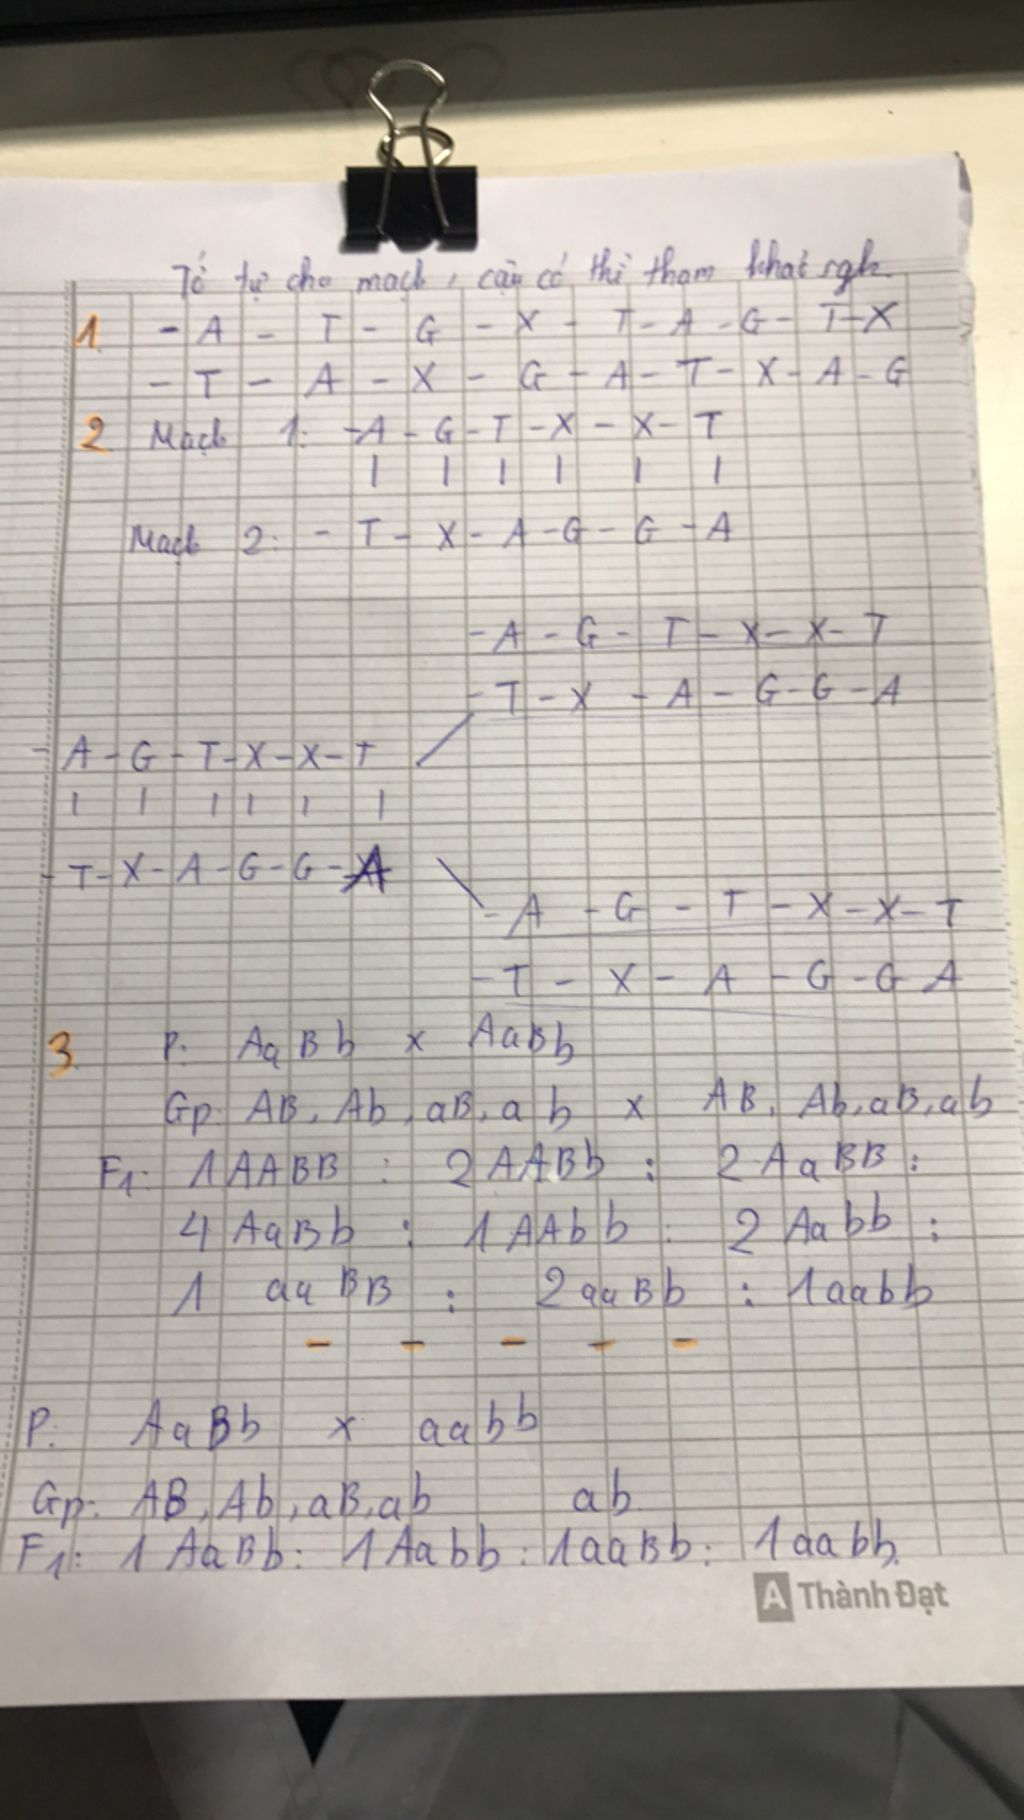 Tớ tự cho mạch, cậu có thì tham khảo sgk
1. - A - T - G - X - T - A - G - T - X
- T - A - X - G - A - T - X - A - G
2 Mạch 1: - A - G - T - X - X - T
| | | | | |
Mạch 2: - T - X - A - G - G - A
- A - G - T - X - X - T
- T - X - A - G - G - A
- A - G - T - X - X - T
| | | | | |
- T - X - A - G - G - A
- A - G - T - X - X - T
- T - X - A - G - G A
3 P: AaBb x AaBb
Gp: AB, Ab, aB, ab x AB, Ab, aB, ab
F1: 1AABB : 2AABb : 2AaBB :
4 AaBb : 1AAbb : 2 Aabb :
1 aaBB : 2aaBb : 1aabb
- - - - -
P: AaBb x aabb
Gp: AB, Ab, aB, ab ab
F1: 1 AaBb : 1Aabb : 1aaBb : 1aabb.
A Thành Đạt